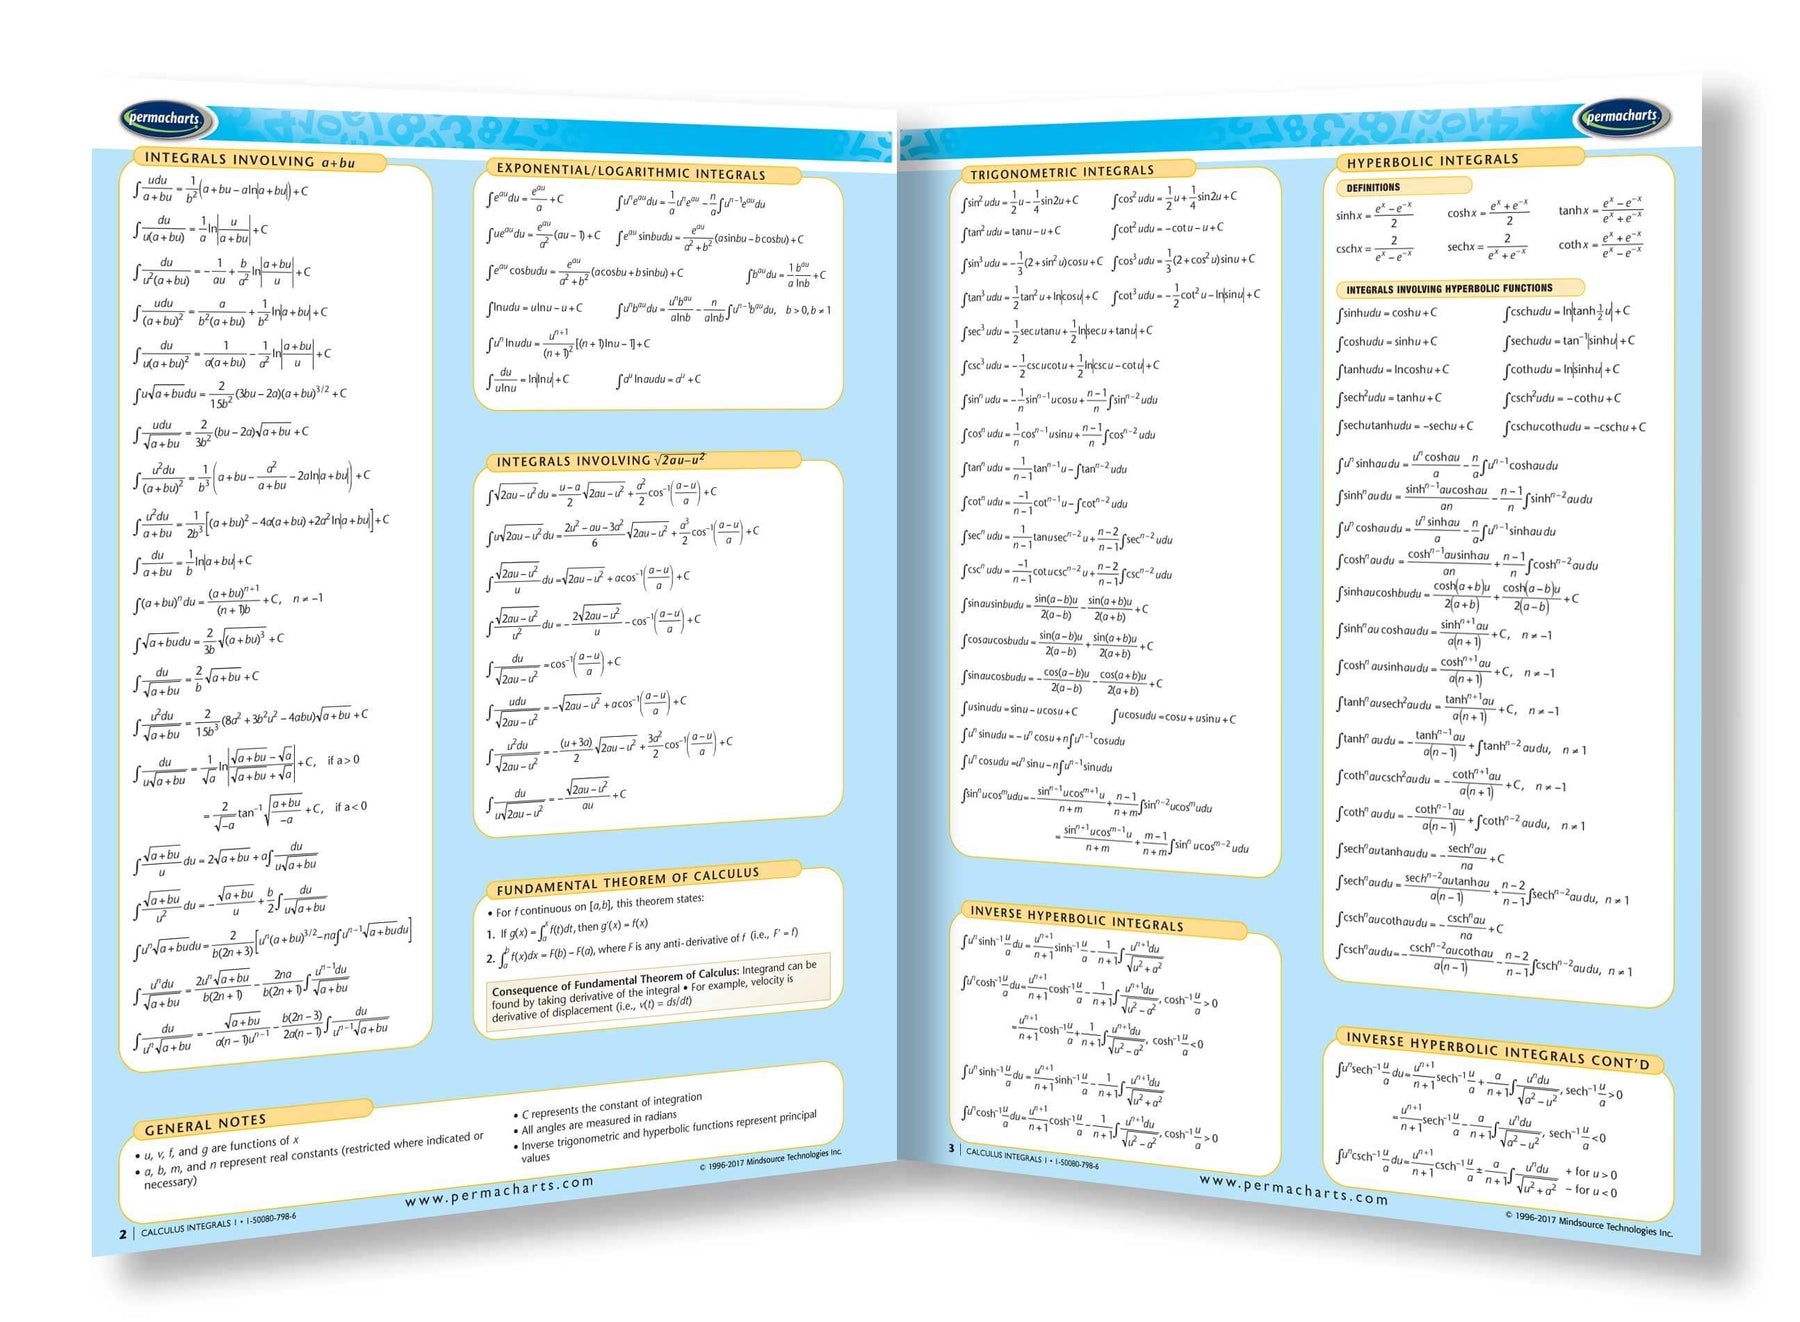 permacharts
INTEGRALS INVOLVING a+bu
∫ udu/(a+bu) = 1/b² (a+bu – aln|a+bu|) + C
∫ du/(u(a+bu)) = 1/a ln|u/(a+bu)| + C
∫ du/(u²(a+bu)) = –1/(au) + b/a² ln|(a+bu)/u| + C
∫ udu/(a+bu)² = a/(b²(a+bu)) + 1/b² ln|a+bu| + C
∫ du/(u(a+bu)²) = 1/(a(a+bu)) – 1/a² ln|(a+bu)/u| + C
∫u√(a+bu)du = 2/(15b²) (3bu–2a)(a+bu)^(3/2) + C
∫ udu/√(a+bu) = 2/(3b²) (bu–2a)√(a+bu) + C
∫ u²du/(a+bu)² = 1/b³ (a+bu – a²/(a+bu) – 2aln|a+bu|) + C
∫ u²du/(a+bu) = 1/(2b³) [(a+bu)² – 4a(a+bu) + 2a²ln|a+bu|] + C
∫ du/(a+bu) = 1/b ln|a+bu| + C
∫(a+bu)ⁿdu = (a+bu)ⁿ⁺¹/((n+1)b) + C, n ≠ –1
∫√(a+bu)du = 2/(3b) √(a+bu)³ + C
∫ du/√(a+bu) = 2/b √(a+bu) + C
∫ u²du/√(a+bu) = 2/(15b³) (8a²+3b²u²–4abu)√(a+bu) + C
∫ du/(u√(a+bu)) = 1/√a ln|(√(a+bu)–√a)/(√(a+bu)+√a)| + C, if a>0
= 2/√–a tan⁻¹√((a+bu)/–a) + C, if a<0
∫ √(a+bu)/u du = 2√(a+bu) + a∫ du/(u√(a+bu))
∫ √(a+bu)/u² du = –√(a+bu)/u + b/2 ∫ du/(u√(a+bu))
∫uⁿ√(a+bu)du = 2/(b(2n+3)) [uⁿ(a+bu)^(3/2) – na∫uⁿ⁻¹√(a+bu)du]
∫ uⁿdu/√(a+bu) = 2uⁿ√(a+bu)/(b(2n+1)) – 2na/(b(2n+1)) ∫ uⁿ⁻¹du/√(a+bu)
∫ du/(uⁿ√(a+bu)) = –√(a+bu)/(a(n–1)uⁿ⁻¹) – b(2n–3)/(2a(n–1)) ∫ du/(uⁿ⁻¹√(a+bu))
EXPONENTIAL/LOGARITHMIC INTEGRALS
∫e^(au)du = e^(au)/a + C ∫uⁿe^(au)du = 1/a uⁿe^(au) – n/a ∫uⁿ⁻¹e^(au)du
∫ue^(au)du = e^(au)/a² (au–1) + C ∫e^(au)sinbudu = e^(au)/(a²+b²) (asinbu – bcosbu) + C
∫e^(au)cosbudu = e^(au)/(a²+b²) (acosbu + bsinbu) + C ∫b^(au)du = 1/a b^(au)/lnb + C
∫lnudu = ulnu – u + C ∫uⁿb^(au)du = uⁿb^(au)/(alnb) – n/(alnb) ∫uⁿ⁻¹b^(au)du, b>0,b≠1
∫uⁿlnudu = uⁿ⁺¹/(n+1)² [(n+1)lnu – 1] + C
∫ du/(ulnu) = ln|lnu| + C ∫aᵘlnaudu = aᵘ + C
INTEGRALS INVOLVING √2au–u²
∫√(2au–u²)du = (u–a)/2 √(2au–u²) + a²/2 cos⁻¹((a–u)/a) + C
∫u√(2au–u²)du = (2u²–au–3a²)/6 √(2au–u²) + a³/2 cos⁻¹((a–u)/a) + C
∫ √(2au–u²)/u du = √(2au–u²) + acos⁻¹((a–u)/a) + C
∫ √(2au–u²)/u² du = –2√(2au–u²)/u – cos⁻¹((a–u)/a) + C
∫ du/√(2au–u²) = cos⁻¹((a–u)/a) + C
∫ udu/√(2au–u²) = –√(2au–u²) + acos⁻¹((a–u)/a) + C
∫ u²du/√(2au–u²) = –(u+3a)/2 √(2au–u²) + 3a²/2 cos⁻¹((a–u)/a) + C
∫ du/(u√(2au–u²)) = –√(2au–u²)/(au) + C
FUNDAMENTAL THEOREM OF CALCULUS
• For f continuous on [a,b], this theorem states:
1. If g(x) = ∫ₐˣ f(t)dt, then g'(x) = f(x)
2. ∫ₐᵇ f(x)dx = F(b) – F(a), where F is any anti-derivative of f (i.e., F' = f)
Consequence of Fundamental Theorem of Calculus: Integrand can be
found by taking derivative of the integral • For example, velocity is
derivative of displacement (i.e., v(t) = ds/dt)
GENERAL NOTES
• u, v, f, and g are functions of x
• a, b, m, and n represent real constants (restricted where indicated or
necessary)
• C represents the constant of integration
• All angles are measured in radians
• Inverse trigonometric and hyperbolic functions represent principal
values
© 1996-2017 Mindsource Technologies Inc.
www.permacharts.com
2 | CALCULUS INTEGRALS I • 1-50080-798-6
permacharts
TRIGONOMETRIC INTEGRALS
∫sin²udu = 1/2 u – 1/4 sin2u + C ∫cos²udu = 1/2 u + 1/4 sin2u + C
∫tan²udu = tanu – u + C ∫cot²udu = –cotu – u + C
∫sin³udu = –1/3 (2+sin²u)cosu + C ∫cos³udu = 1/3 (2+cos²u)sinu + C
∫tan³udu = 1/2 tan²u + ln|cosu| + C ∫cot³udu = –1/2 cot²u – ln|sinu| + C
∫sec³udu = 1/2 secutanu + 1/2 ln|secu+tanu| + C
∫csc³udu = –1/2 cscucotu + 1/2 ln|cscu–cotu| + C
∫sinⁿudu = –1/n sinⁿ⁻¹ucosu + (n–1)/n ∫sinⁿ⁻²udu
∫cosⁿudu = 1/n cosⁿ⁻¹usinu + (n–1)/n ∫cosⁿ⁻²udu
∫tanⁿudu = 1/(n–1) tanⁿ⁻¹u – ∫tanⁿ⁻²udu
∫cotⁿudu = –1/(n–1) cotⁿ⁻¹u – ∫cotⁿ⁻²udu
∫secⁿudu = 1/(n–1) tanusecⁿ⁻²u + (n–2)/(n–1) ∫secⁿ⁻²udu
∫cscⁿudu = –1/(n–1) cotucscⁿ⁻²u + (n–2)/(n–1) ∫cscⁿ⁻²udu
∫sinausinbudu = sin(a–b)u/(2(a–b)) – sin(a+b)u/(2(a+b)) + C
∫cosaucosbudu = sin(a–b)u/(2(a–b)) + sin(a+b)u/(2(a+b)) + C
∫sinaucosbudu = –cos(a–b)u/(2(a–b)) – cos(a+b)u/(2(a+b)) + C
∫usinudu = sinu – ucosu + C ∫ucosudu = cosu + usinu + C
∫uⁿsinudu = –uⁿcosu + n∫uⁿ⁻¹cosudu
∫uⁿcosudu = uⁿsinu – n∫uⁿ⁻¹sinudu
∫sinⁿucosᵐudu = –sinⁿ⁻¹ucosᵐ⁺¹u/(n+m) + (n–1)/(n+m) ∫sinⁿ⁻²ucosᵐudu
= sinⁿ⁺¹ucosᵐ⁻¹u/(n+m) + (m–1)/(n+m) ∫sinⁿucosᵐ⁻²udu
INVERSE HYPERBOLIC INTEGRALS
∫uⁿsinh⁻¹ u/a du = uⁿ⁺¹/(n+1) sinh⁻¹ u/a – 1/(n+1) ∫ uⁿ⁺¹du/√(u²+a²)
∫uⁿcosh⁻¹ u/a du = uⁿ⁺¹/(n+1) cosh⁻¹ u/a – 1/(n+1) ∫ uⁿ⁺¹du/√(u²–a²), cosh⁻¹ u/a >0
= uⁿ⁺¹/(n+1) cosh⁻¹ u/a + 1/(n+1) ∫ uⁿ⁺¹du/√(u²–a²), cosh⁻¹ u/a <0
∫uⁿsinh⁻¹ u/a du = uⁿ⁺¹/(n+1) sinh⁻¹ u/a – 1/(n+1) ∫ uⁿ⁺¹du/√(u²+a²)
∫uⁿcosh⁻¹ u/a du = uⁿ⁺¹/(n+1) cosh⁻¹ u/a – 1/(n+1) ∫ uⁿ⁺¹du/√(u²–a²), cosh⁻¹ u/a >0
HYPERBOLIC INTEGRALS
DEFINITIONS
sinhx = (eˣ–e⁻ˣ)/2 coshx = (eˣ+e⁻ˣ)/2 tanhx = (eˣ–e⁻ˣ)/(eˣ+e⁻ˣ)
cschx = 2/(eˣ–e⁻ˣ) sechx = 2/(eˣ+e⁻ˣ) cothx = (eˣ+e⁻ˣ)/(eˣ–e⁻ˣ)
INTEGRALS INVOLVING HYPERBOLIC FUNCTIONS
∫sinhudu = coshu + C ∫cschudu = ln|tanh 1/2 u| + C
∫coshudu = sinhu + C ∫sechudu = tan⁻¹|sinhu| + C
∫tanhudu = lncoshu + C ∫cothudu = ln|sinhu| + C
∫sech²udu = tanhu + C ∫csch²udu = –cothu + C
∫sechutanhudu = –sechu + C ∫cschucothudu = –cschu + C
∫uⁿsinhaudu = uⁿcoshau/a – n/a ∫uⁿ⁻¹coshaudu
∫sinhⁿaudu = sinhⁿ⁻¹aucoshau/an – (n–1)/n ∫sinhⁿ⁻²audu
∫uⁿcoshaudu = uⁿsinhau/a – n/a ∫uⁿ⁻¹sinhaudu
∫coshⁿaudu = coshⁿ⁻¹ausinhau/an + (n–1)/n ∫coshⁿ⁻²audu
∫sinhaucoshbudu = cosh(a+b)u/(2(a+b)) + cosh(a–b)u/(2(a–b)) + C
∫sinhⁿaucoshaudu = sinhⁿ⁺¹au/(a(n+1)) + C, n ≠ –1
∫coshⁿausinhaudu = coshⁿ⁺¹au/(a(n+1)) + C, n ≠ –1
∫tanhⁿausech²audu = tanhⁿ⁺¹au/(a(n+1)) + C, n ≠ –1
∫tanhⁿaudu = –tanhⁿ⁻¹au/(a(n–1)) + ∫tanhⁿ⁻²audu, n ≠ 1
∫cothⁿaucsch²audu = –cothⁿ⁺¹au/(a(n+1)) + C, n ≠ –1
∫cothⁿaudu = –cothⁿ⁻¹au/(a(n–1)) + ∫cothⁿ⁻²audu, n ≠ 1
∫sechⁿautanhaudu = –sechⁿau/na + C
∫sechⁿaudu = sechⁿ⁻²autanhau/(a(n–1)) + (n–2)/(n–1) ∫sechⁿ⁻²audu, n ≠ 1
∫cschⁿaucothaudu = –cschⁿau/na + C
∫cschⁿaudu = –cschⁿ⁻²aucothau/(a(n–1)) – (n–2)/(n–1) ∫cschⁿ⁻²audu, n ≠ 1
INVERSE HYPERBOLIC INTEGRALS CONT'D
∫uⁿsech⁻¹ u/a du = uⁿ⁺¹/(n+1) sech⁻¹ u/a + a/(n+1) ∫ uⁿdu/√(a²–u²), sech⁻¹ u/a >0
= uⁿ⁺¹/(n+1) sech⁻¹ u/a – a/(n+1) ∫ uⁿdu/√(a²–u²), sech⁻¹ u/a <0
∫uⁿcsch⁻¹ u/a du = uⁿ⁺¹/(n+1) csch⁻¹ u/a ± a/(n+1) ∫ uⁿdu/√(u²+a²) + for u>0
– for u<0
3 | CALCULUS INTEGRALS I • 1-50080-798-6
www.permacharts.com
© 1996-2017 Mindsource Technologies Inc.